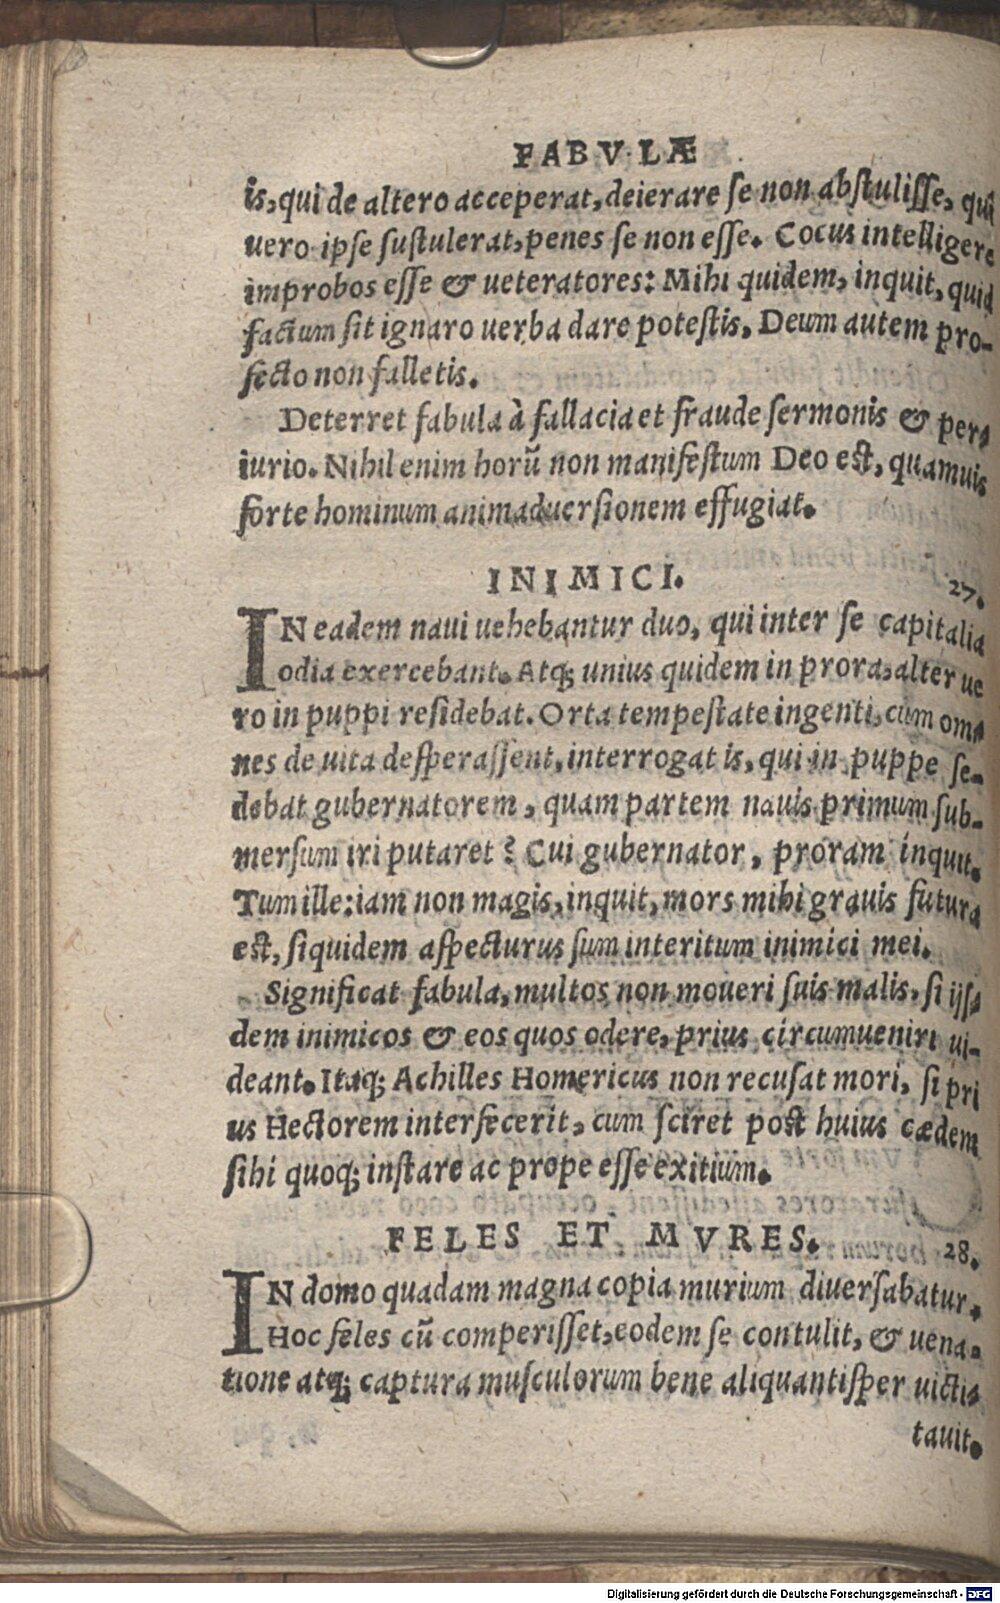 FABVLÆ
is, qui de altero acceperat, deierare se non abstulisse, qui
uero ipse sustulerat, penes se non esse. Cocus intelligere
improbos esse & ueteratores: Mihi quidem, inquit, quid
factum sit ignaro uerba dare potestis, Deum autem pro-
fecto non falletis.
Deterret fabula à fallacia et fraude sermonis & per-
iurio. Nihil enim horũ non manifestum Deo est, quamuis
forte hominum animaduersionem effugiat.
INIMICI. 27.
IN eadem naui uehebantur duo, qui inter se capitalia
odia exercebant. Atq; unius quidem in prora, alter ue
ro in puppi residebat. Orta tempestate ingenti, cum om-
nes de uita desperassent, interrogat is, qui in puppe se-
debat gubernatorem, quam partem nauis primum sub-
mersum iri putaret? Cui gubernator, proram inquit.
Tum ille: iam non magis, inquit, mors mihi grauis futura
est, siquidem aspecturus sum interitum inimici mei.
Significat fabula, multos non moueri suis malis, si ijs-
dem inimicos & eos quos odere, prius circumueniri ui-
deant. Itaq; Achilles Homericus non recusat mori, si pri
us Hectorem interfecerit, cum sciret post huius cædem
sibi quoq; instare ac prope esse exitium.
FELES ET MVRES. 28.
IN domo quadam magna copia murium diuersabatur.
Hoc feles cũ comperisset, eodem se contulit, & uena-
tione atq; captura musculorum bene aliquantisper uicti-
tauit.
Digitalisierung gefördert durch die Deutsche Forschungsgemeinschaft - DFG